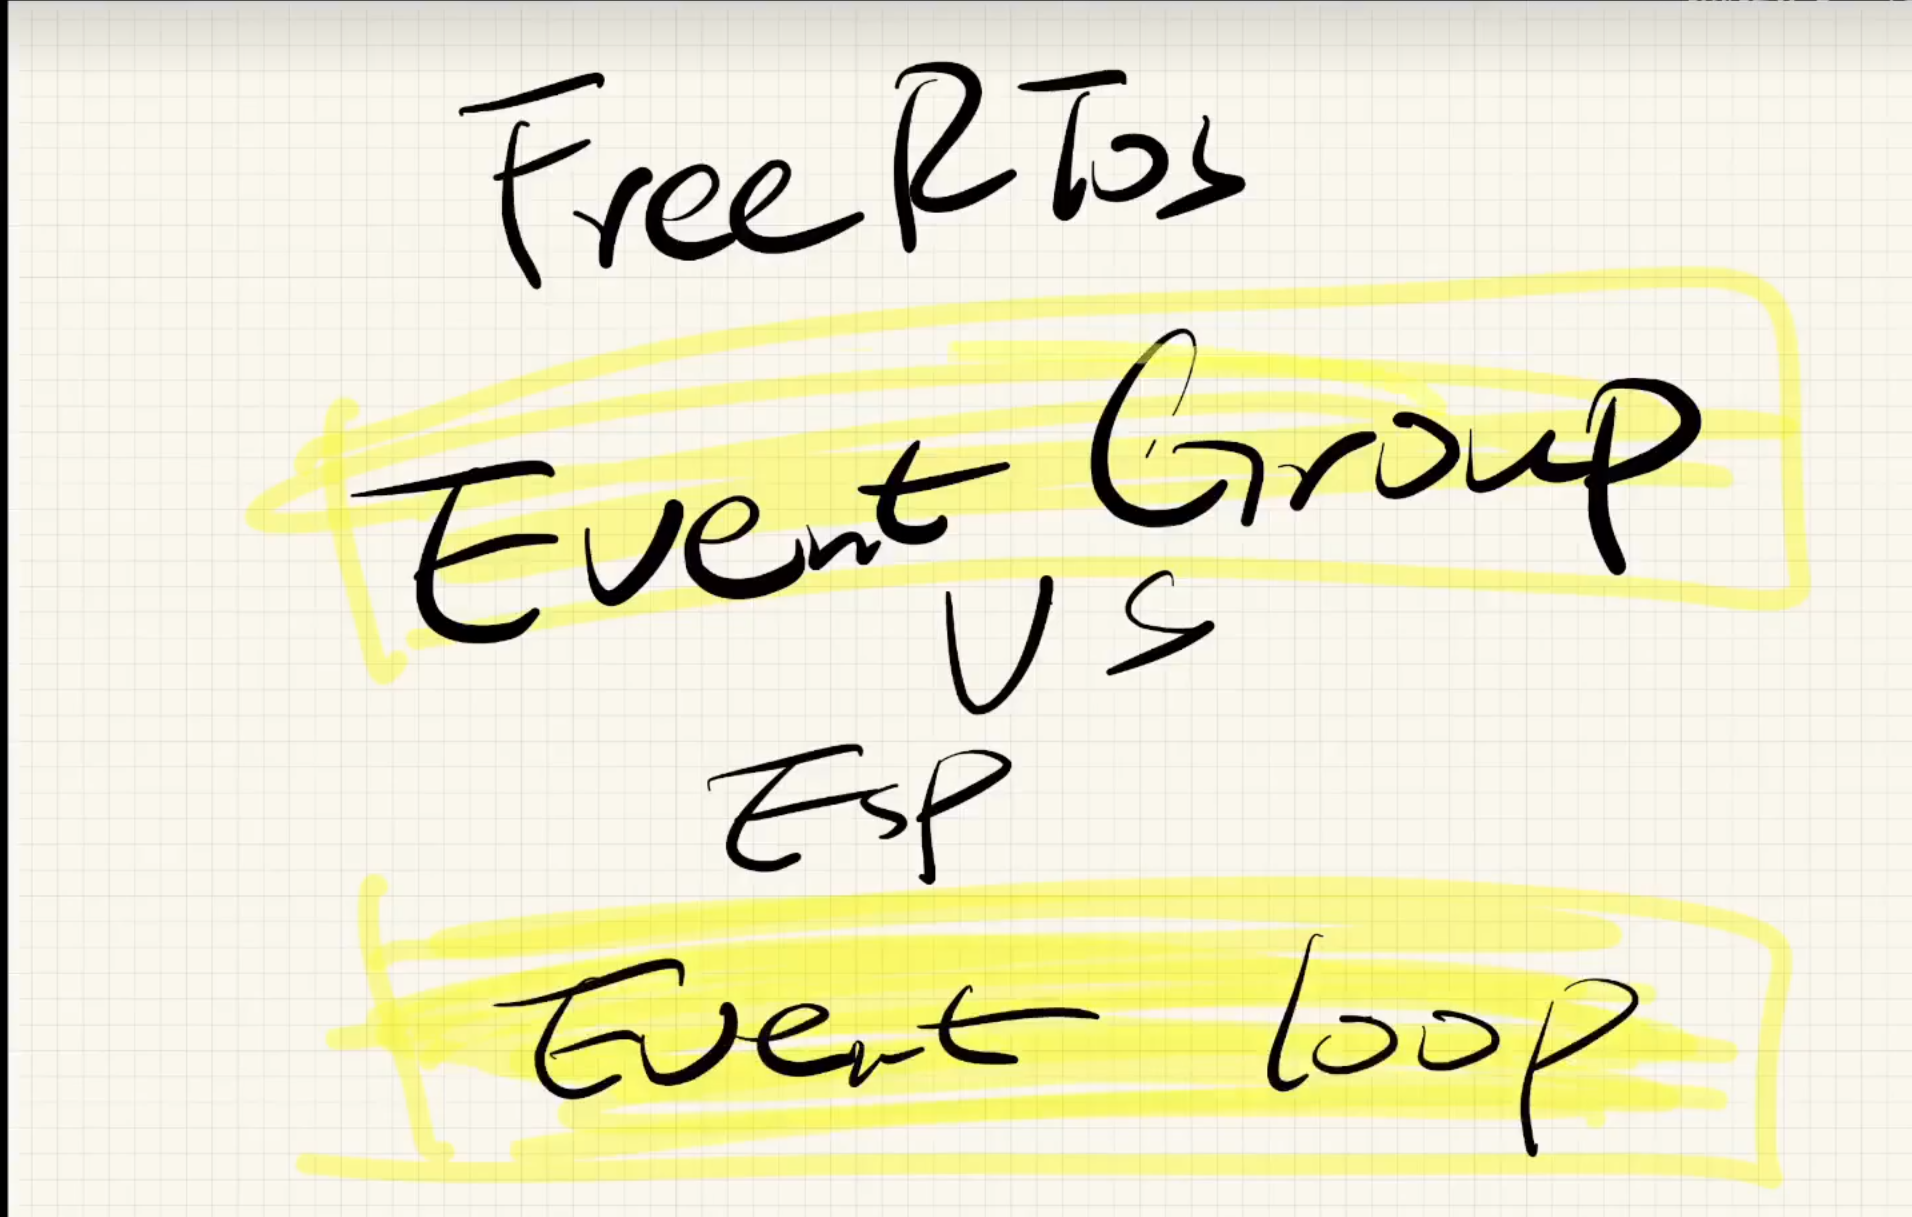 FreeRTos
Event Group
VS
Esp
Event loop